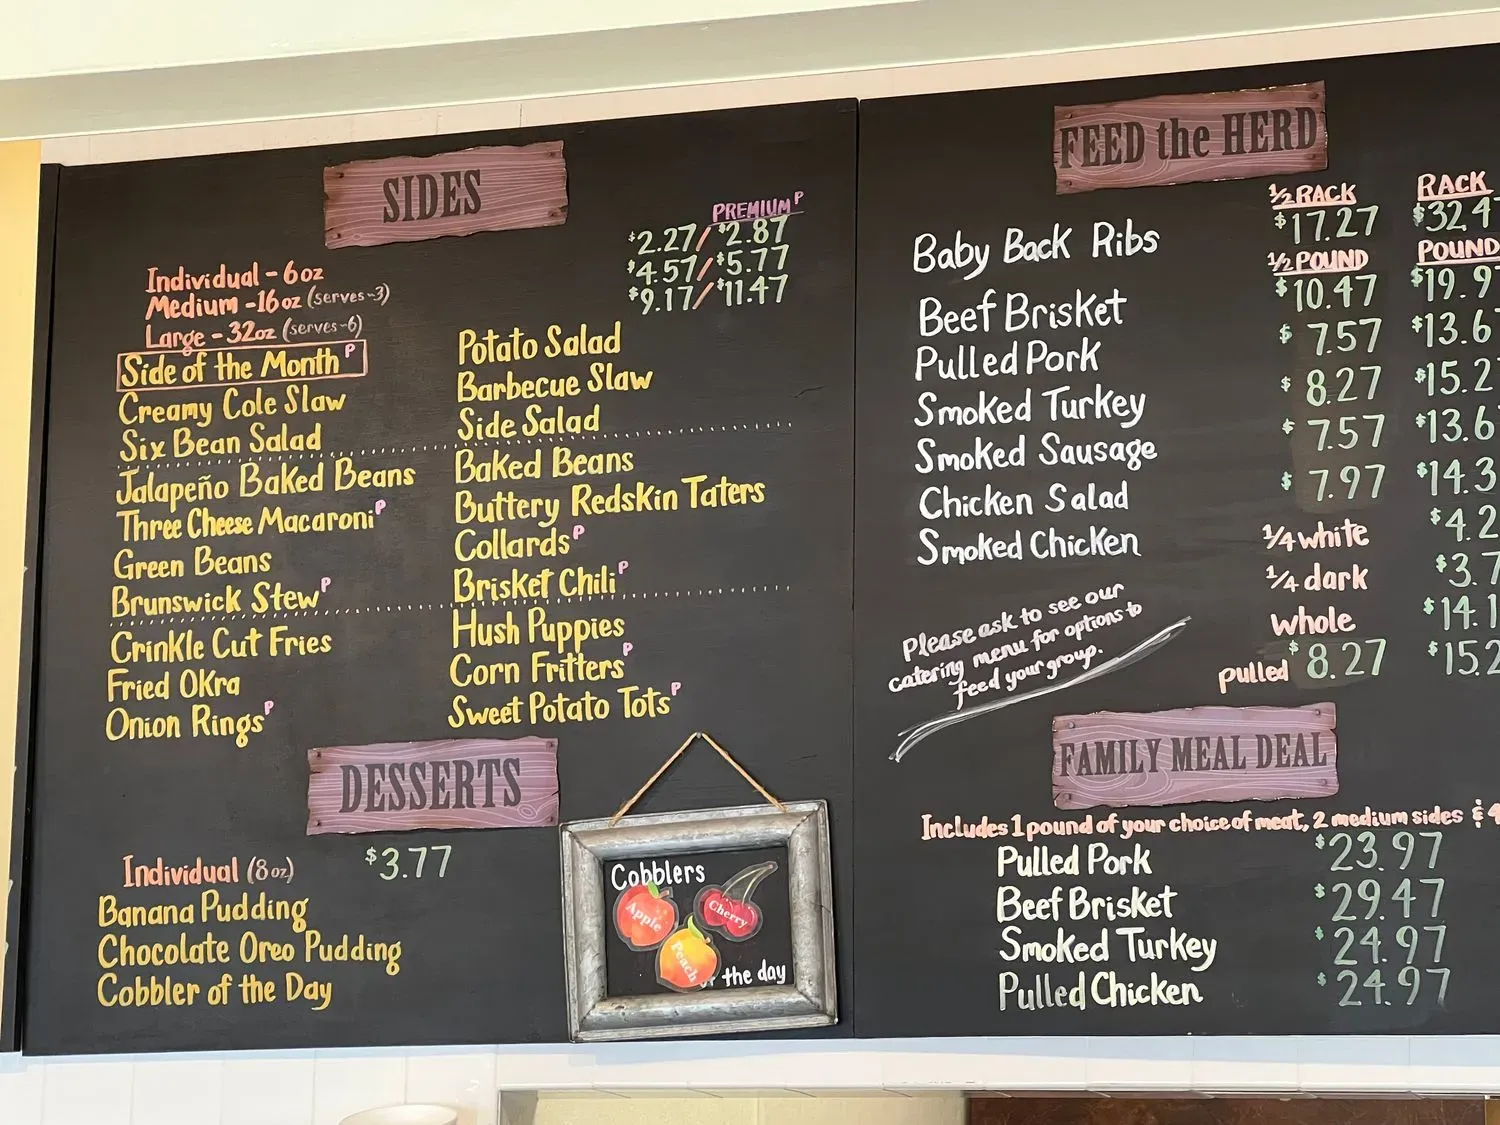 SIDES
PREMIUM P
Individual - 6oz $2.27/$2.87
Medium - 16oz (serves-3) $4.57/$5.77
Large - 32oz (serves-6) $9.17/$11.47
Side of the Month P
Creamy Cole Slaw
Six Bean Salad
Potato Salad
Barbecue Slaw
Side Salad
Jalapeño Baked Beans
Three Cheese Macaroni P
Green Beans
Brunswick Stew P
Baked Beans
Buttery Redskin Taters
Collards P
Brisket Chili P
Crinkle Cut Fries
Fried Okra
Onion Rings P
Hush Puppies
Corn Fritters P
Sweet Potato Tots P
DESSERTS
Individual (8oz) $3.77
Banana Pudding
Chocolate Oreo Pudding
Cobbler of the Day
Cobblers
Apple
Cherry
Peach
the day
FEED the HERD
1/2 RACK RACK
Baby Back Ribs $17.27 $32.4
1/2 POUND POUND
Beef Brisket $10.47 $19.9
Pulled Pork $7.57 $13.6
Smoked Turkey $8.27 $15.2
Smoked Sausage $7.57 $13.6
Chicken Salad $7.97 $14.3
Smoked Chicken 1/4 white $4.2
1/4 dark $3.7
whole $14.1
pulled $8.27 $15.2
Please ask to see our
catering menu for options to
feed your group.
FAMILY MEAL DEAL
Includes 1 pound of your choice of meat, 2 medium sides & 4
Pulled Pork $23.97
Beef Brisket $29.47
Smoked Turkey $24.97
Pulled Chicken $24.97